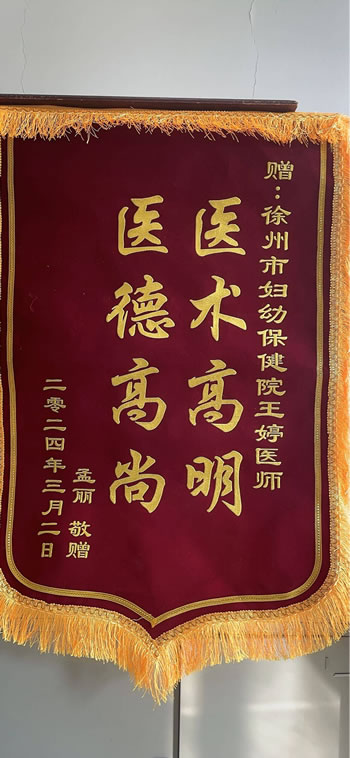 赠：徐州市妇幼保健院王婷医师
医术高明
医德高尚
孟丽 敬赠
二零二四年三月二日